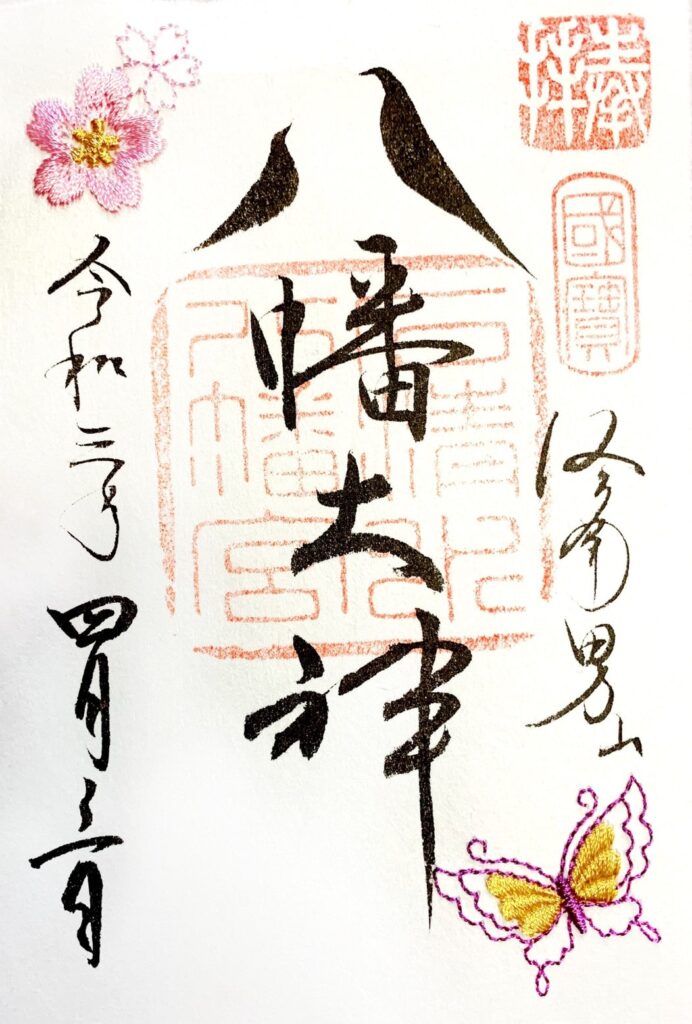 奉拝
國寶
男山
八幡大神
八幡宮
令和三年
四月三日